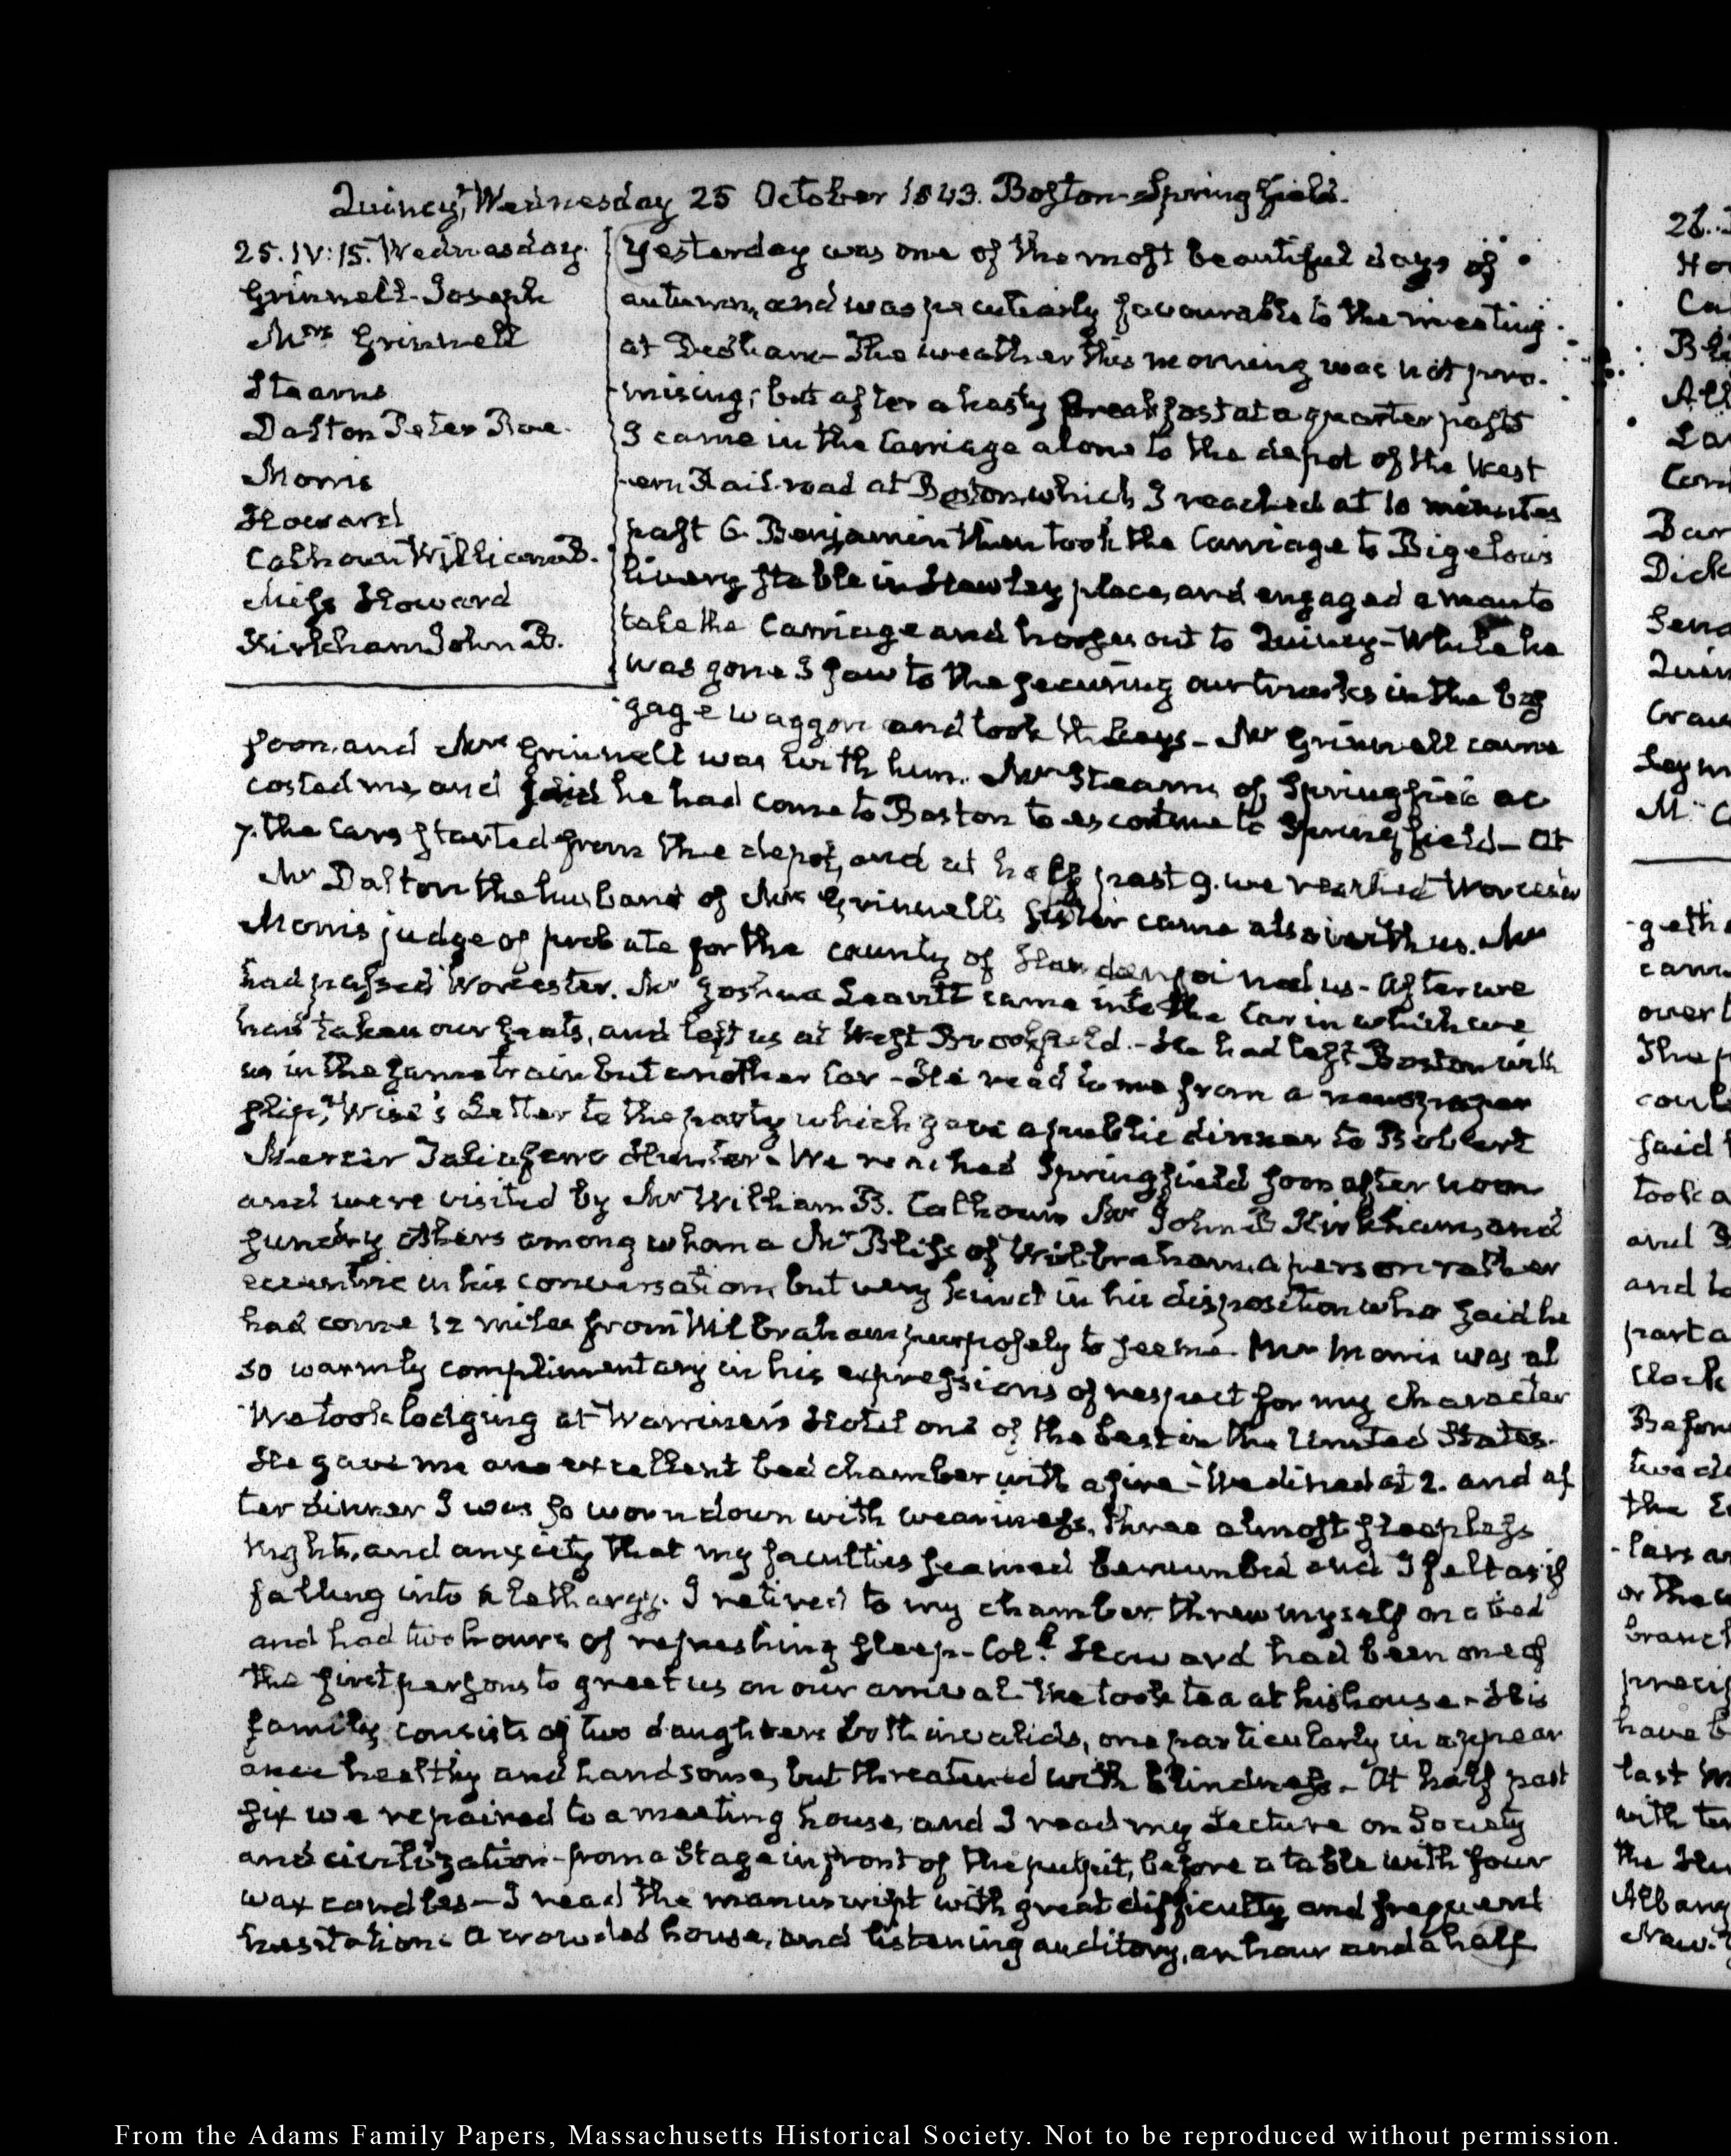 Quincy, Wednesday 25 October 1843. Boston-Springfield.
25. IV:15. Wednesday.
Grinnell-Joseph
Mrs Grinnell
Stearns
Dalton Peter Roe.
Morris
Howard
Calhoun William B.
Miss Howard
Kirkham John B.
Yesterday was one of the most beautiful days of
autumn, and was peculiarly favourable to the meeting
at Dedham- The weather this morning was not pro-
mising; but after a hasty breakfast at a quarter past 5
I came in the Carriage alone to the depot of the West
-ern Rail-road at Boston, which I reached at 10 minutes
past 6. Benjamin then took the Carriage to Bigelow's
livery stable in Hawley place, and engaged a man to
take the Carriage and horses out to Quincy- While he
was gone I saw to the securing our trunks in the bag
gage waggon and took the keys- Mr Grinnell came
soon, and Mrs Grinnell was with him. Mr Stearns of Springfield ac
costed me, and said he had come to Boston to escort me to Springfield- At
7. the Cars started from the depot, and at half past 9. we reached Worcester
Mr Dalton the husband of Mrs Grinnell's sister came also with us. Mr
Morris judge of probate for the county of Hampden joined us- After we
had passed Worcester. Mr Joshua Leavitt came into the Car in which we
had taken our seats, and left us at West Brookfield.- He had left Boston with
us in the same train but another Car- He read to me from a newspaper
slip, Wise's Letter to the party which gave a public dinner to Robert
Mercer Taliaferro Hunter- We reached Springfield soon after noon
and were visited by Mr William B. Calhoun Mr John B Kirkham, and
sundry others among whom a Mr Bliss of Wilbraham, a person rather
eccentric in his conversation, but very kind in his disposition who said he
had come 12 miles from Wilbraham purposely to see me. Mr Morris was al
so warmly complimentary in his expressions of respect for my character
We took lodging at Warriner's Hotel one of the best in the United States-
He gave me an excellent bed chamber with a fire- We dined at 2. and af
ter dinner I was so worn down with weariness, three almost sleepless
nights, and anxiety that my faculties seemed benumbed and I felt as if
falling into a lethargy. I retired to my chamber threw myself on a bed
and had two hours of refreshing sleep- Col.l Howard had been one of
the first persons to greet us on our arrival- We took tea at his house- His
family consists of two daughters both invalids, one particularly in appear
ance healthy and handsome, but threatened with blindness.- At half past
six we repaired to a meeting house, and I read my Lecture on Society
and civilization- from a Stage in front of the pulpit, before a table with four
wax candles- I read the manuscript with great difficulty and frequent
hesitation- A crowded house, and listening auditory, an hour and a half
From the Adams Family Papers, Massachusetts Historical Society. Not to be reproduced without permission.